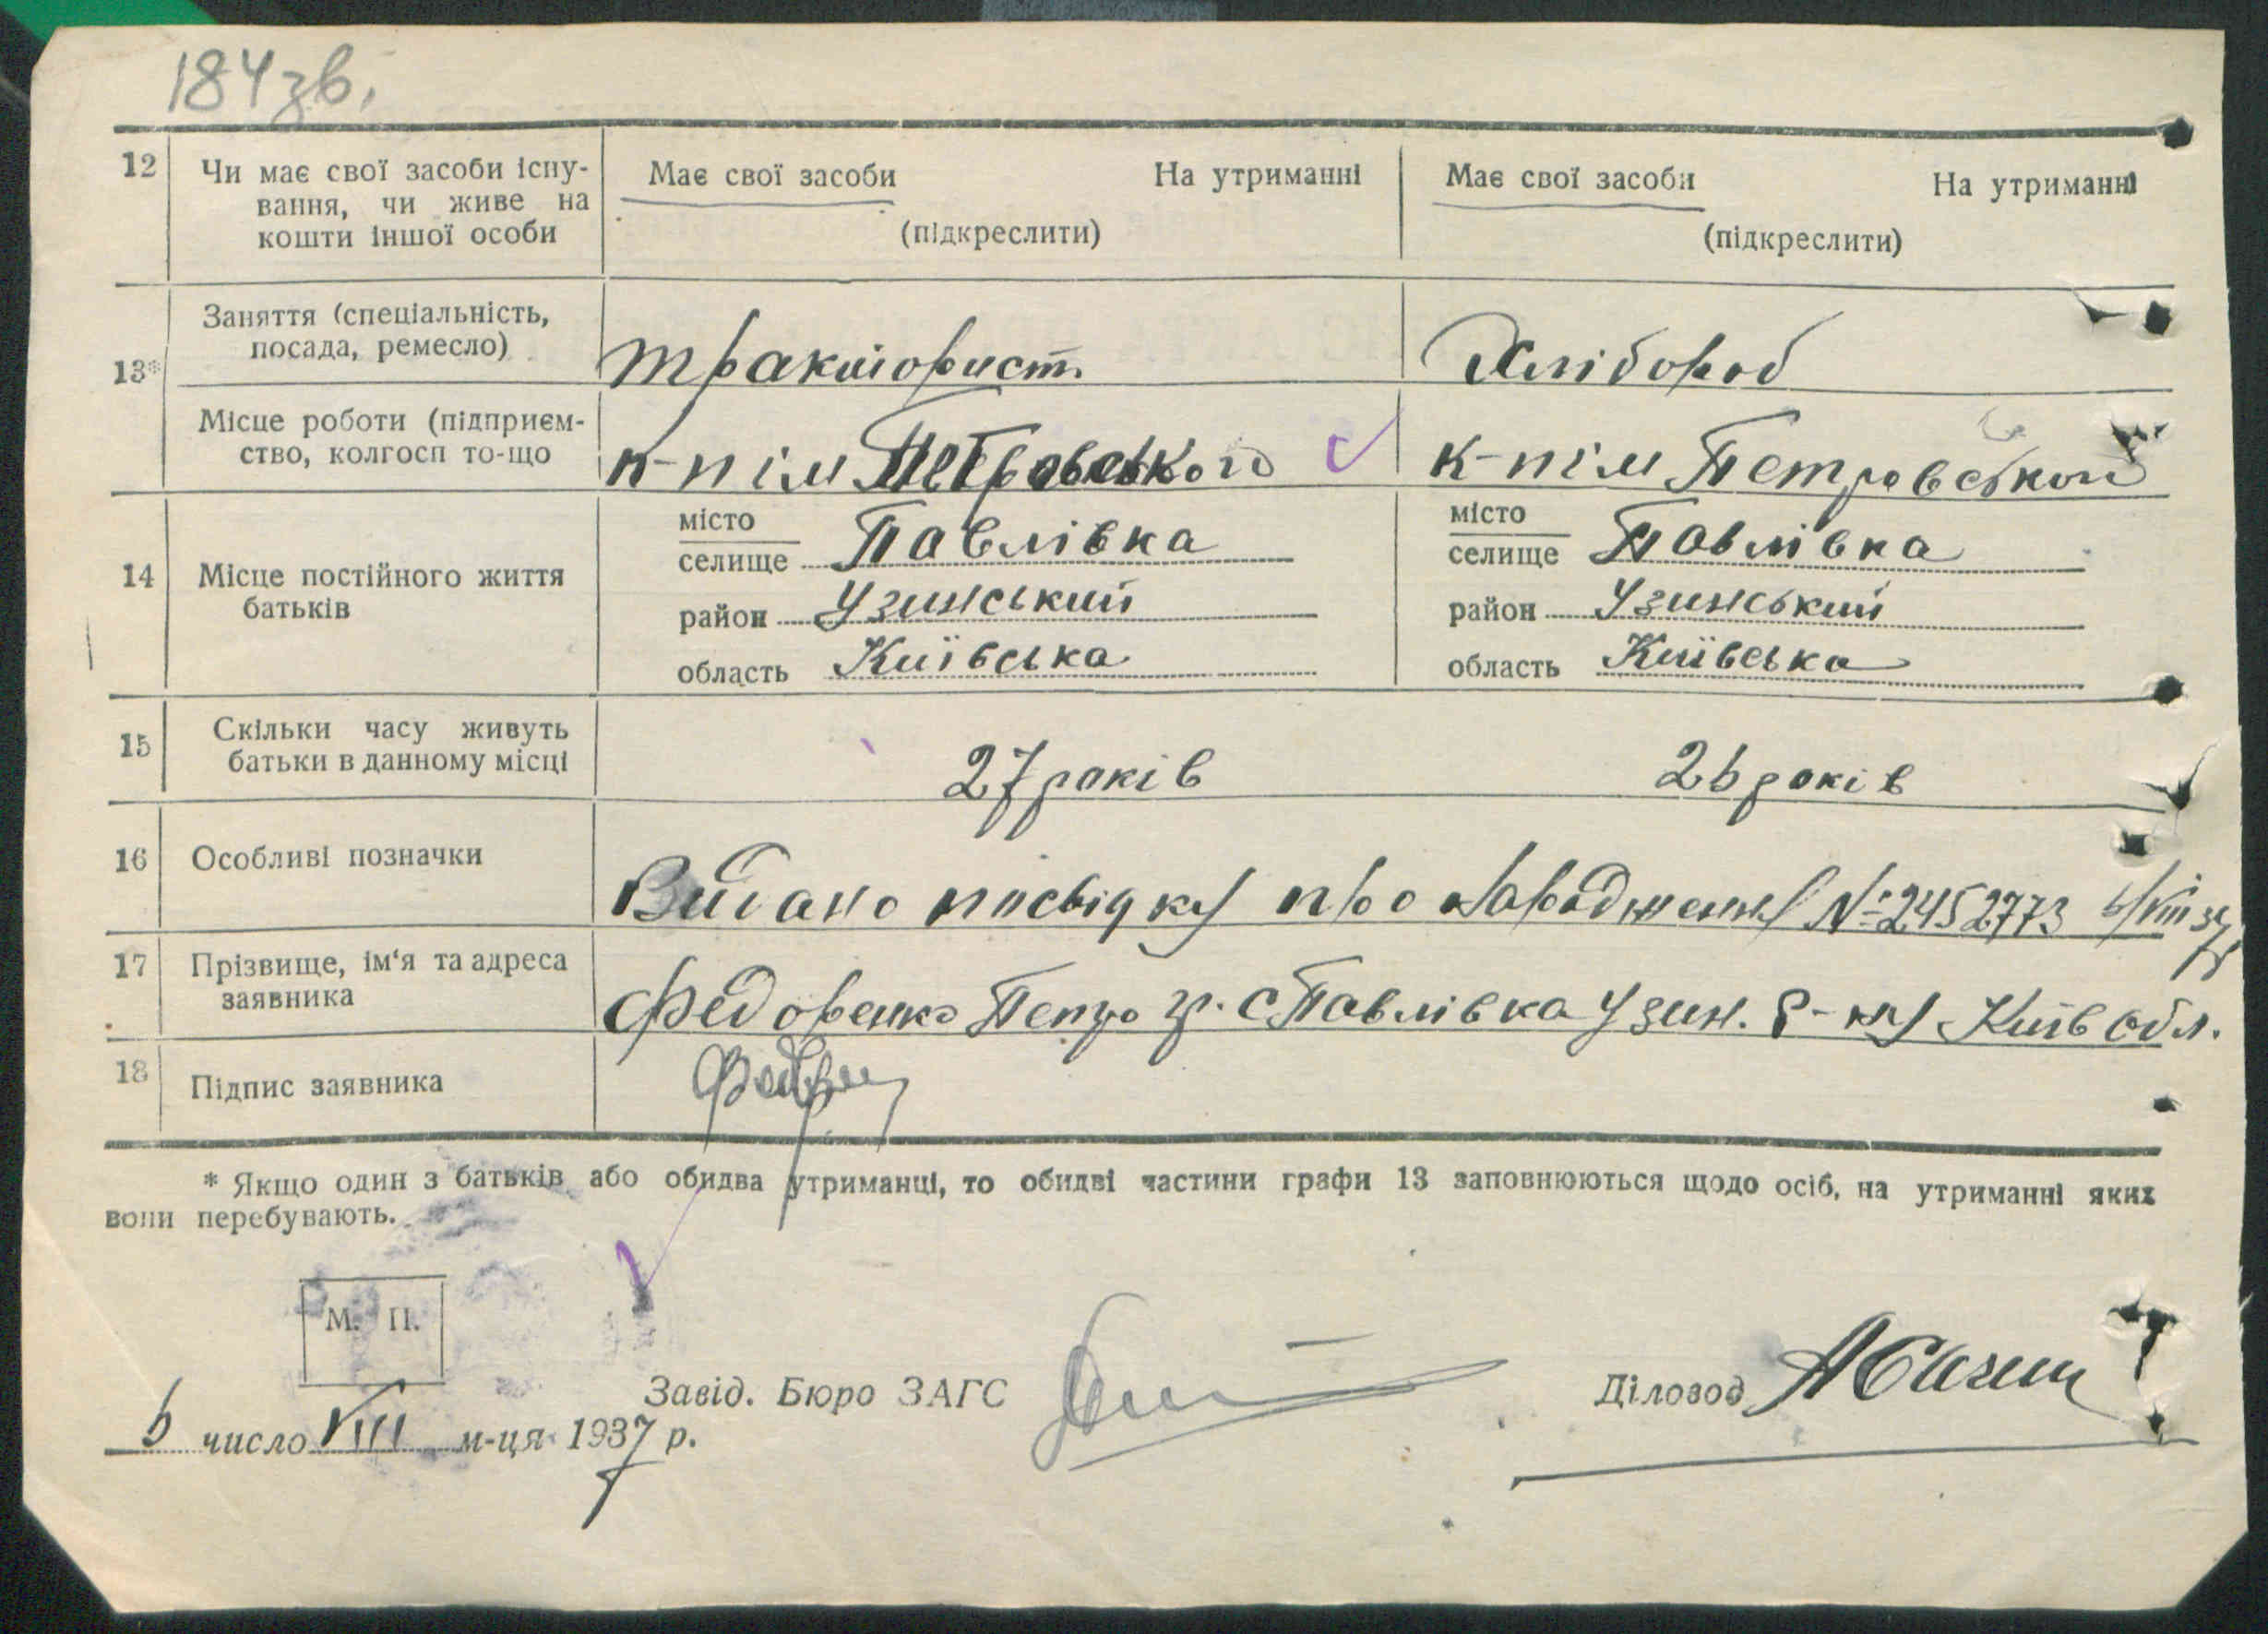 184 зв.
12 Чи має свої засоби існу- Має свої засоби На утриманні Має свої засоби На утриманні
вання, чи живе на
кошти іншої особи (підкреслити) (підкреслити)
Заняття (спеціальність,
посада, ремесло) тракторист Хлібороб
13*
Місце роботи (підприєм-
ство, колгосп то-що к-п ім Петровського к-п ім Петровського
місто місто
селище Павлівка селище Павлівка
14 Місце постійного життя
батьків район Узинський район Узинський
область Київська область Київська
15 Скільки часу живуть
батьки в данному місці 27 років 26 років
16 Особливі позначки
Видано посвідку про народження № 2452773 6/VIII 37
17 Прізвище, ім‘я та адреса
заявника Федоренко Петро гр. с Павлівка Узин. Р-ну Київ обл.
18 Підпис заявника
* Якщо один з батьків або обидва утриманці, то обидві частини графи 13 заповнюються щодо осіб, на утриманні яких
вони перебувають.
М. П.
Завід. Бюро ЗАГС Діловод
6 число VIII м-ця 1937 р.